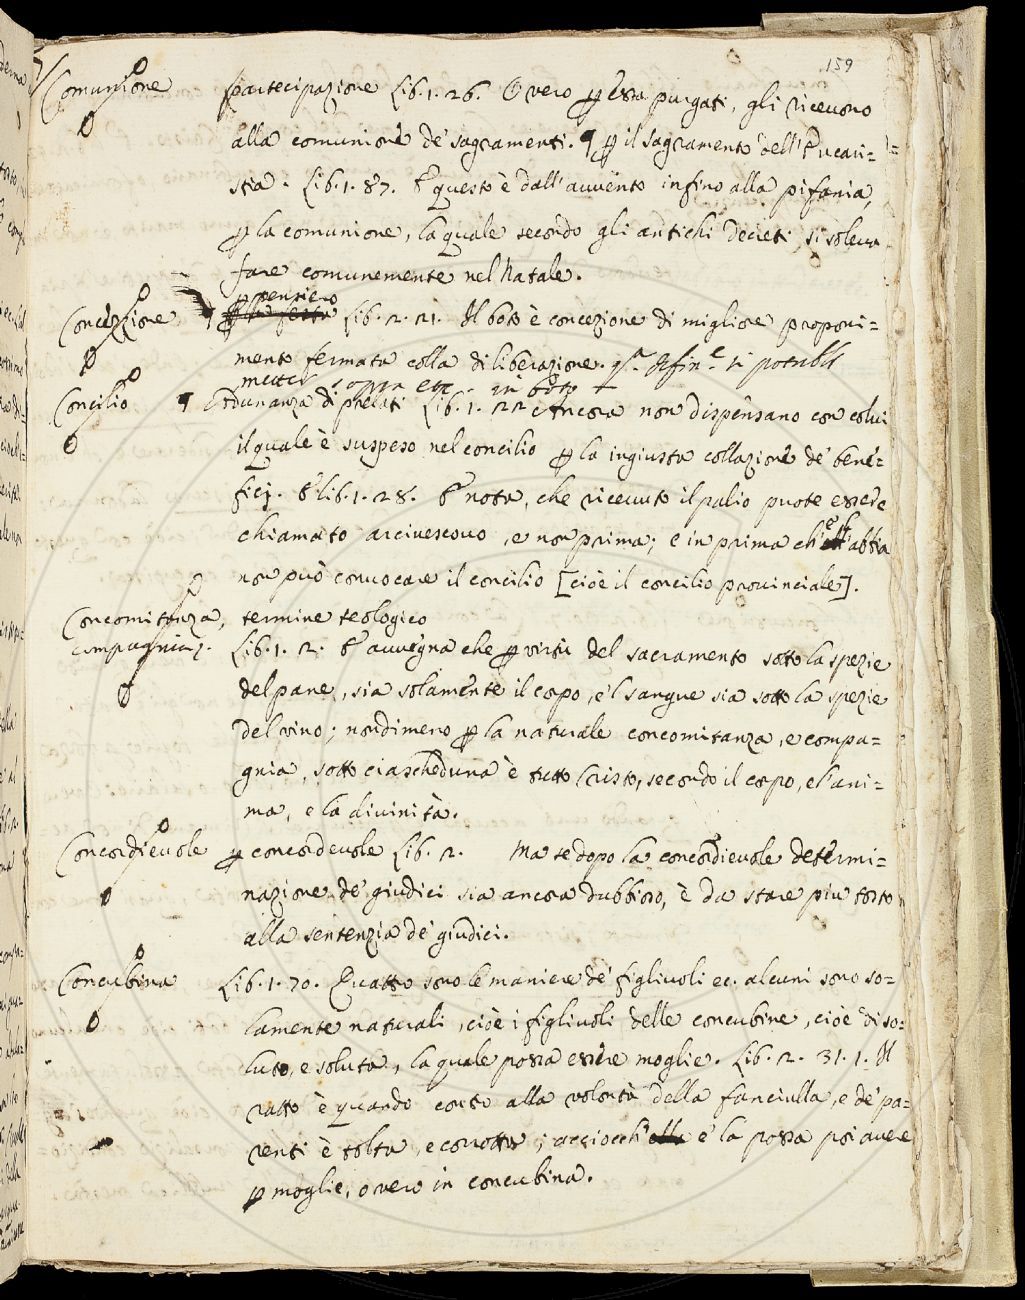 159
Comunione partecipazione Lib. 1. 26. O vero ꝑ essa purgati, gli ricevono
alla comunione de' sagramenti. ¶ ꝑ il sagramento dell'Eucari=
stia. Lib. 1. 87. E questo è dall'avvento infino alla pifania,
ꝑ la comunione, la quale secondo gli antichi decreti si soleva
fare comunemente nel Natale.
ꝑ pensiero
Concezzione ¶ Lib. 2. 21. Il boto è concezione di migliore proponi=
mento fermata colla diliberazione.
metter sopra etc. in boto
Concilio ¶ Adunanza di prelati Lib. 1. 22 Ancora non dispensano con colui
il quale è suspeso nel concilio ꝑ la ingiusta collazione de' bene=
ficj. E lib. 1. 28. E nota, che ricevuto il palio puote essere
chiamato arcivescovo, e non prima; e in prima ch'e' l'abbia
non può convocare il concilio [cioè il concilio provinciale].
Concomitanza, termine teologico
compagnia. Lib. 1. 2. E avvegna che ꝑ virtù del sacramento sotto la spezie
del pane, sia solamente il corpo, e 'l sangue sia sotto la spezie
del vino; nondimeno ꝑ la naturale concomitanza, e compa=
gnia, sotto ciascheduna è tutto Cristo, secondo il corpo, e l'ani=
ma, e la divinità.
Concordievole ꝑ concordevole Lib. 2. Ma se dopo la concordievole determi=
nazione de' giudici sia ancora dubbioso, è da stare più tosto
alla sentenzia de' giudici.
Concubina Lib. 1. 70. Quatto sono le maniere de' figliuoli ec. alcuni sono so=
lamente naturali, cioè i figliuoli delle concubine, cioè di so=
luto, e soluta, la quale possa essere moglie. Lib. 2. 31. 1. Il
ratto è quando contro alla volontà della fanciulla, e de' pa=
renti è tolta, e corrotta, acciocch' e' la possa poi avere
ꝑ moglie, o vero in concubina.